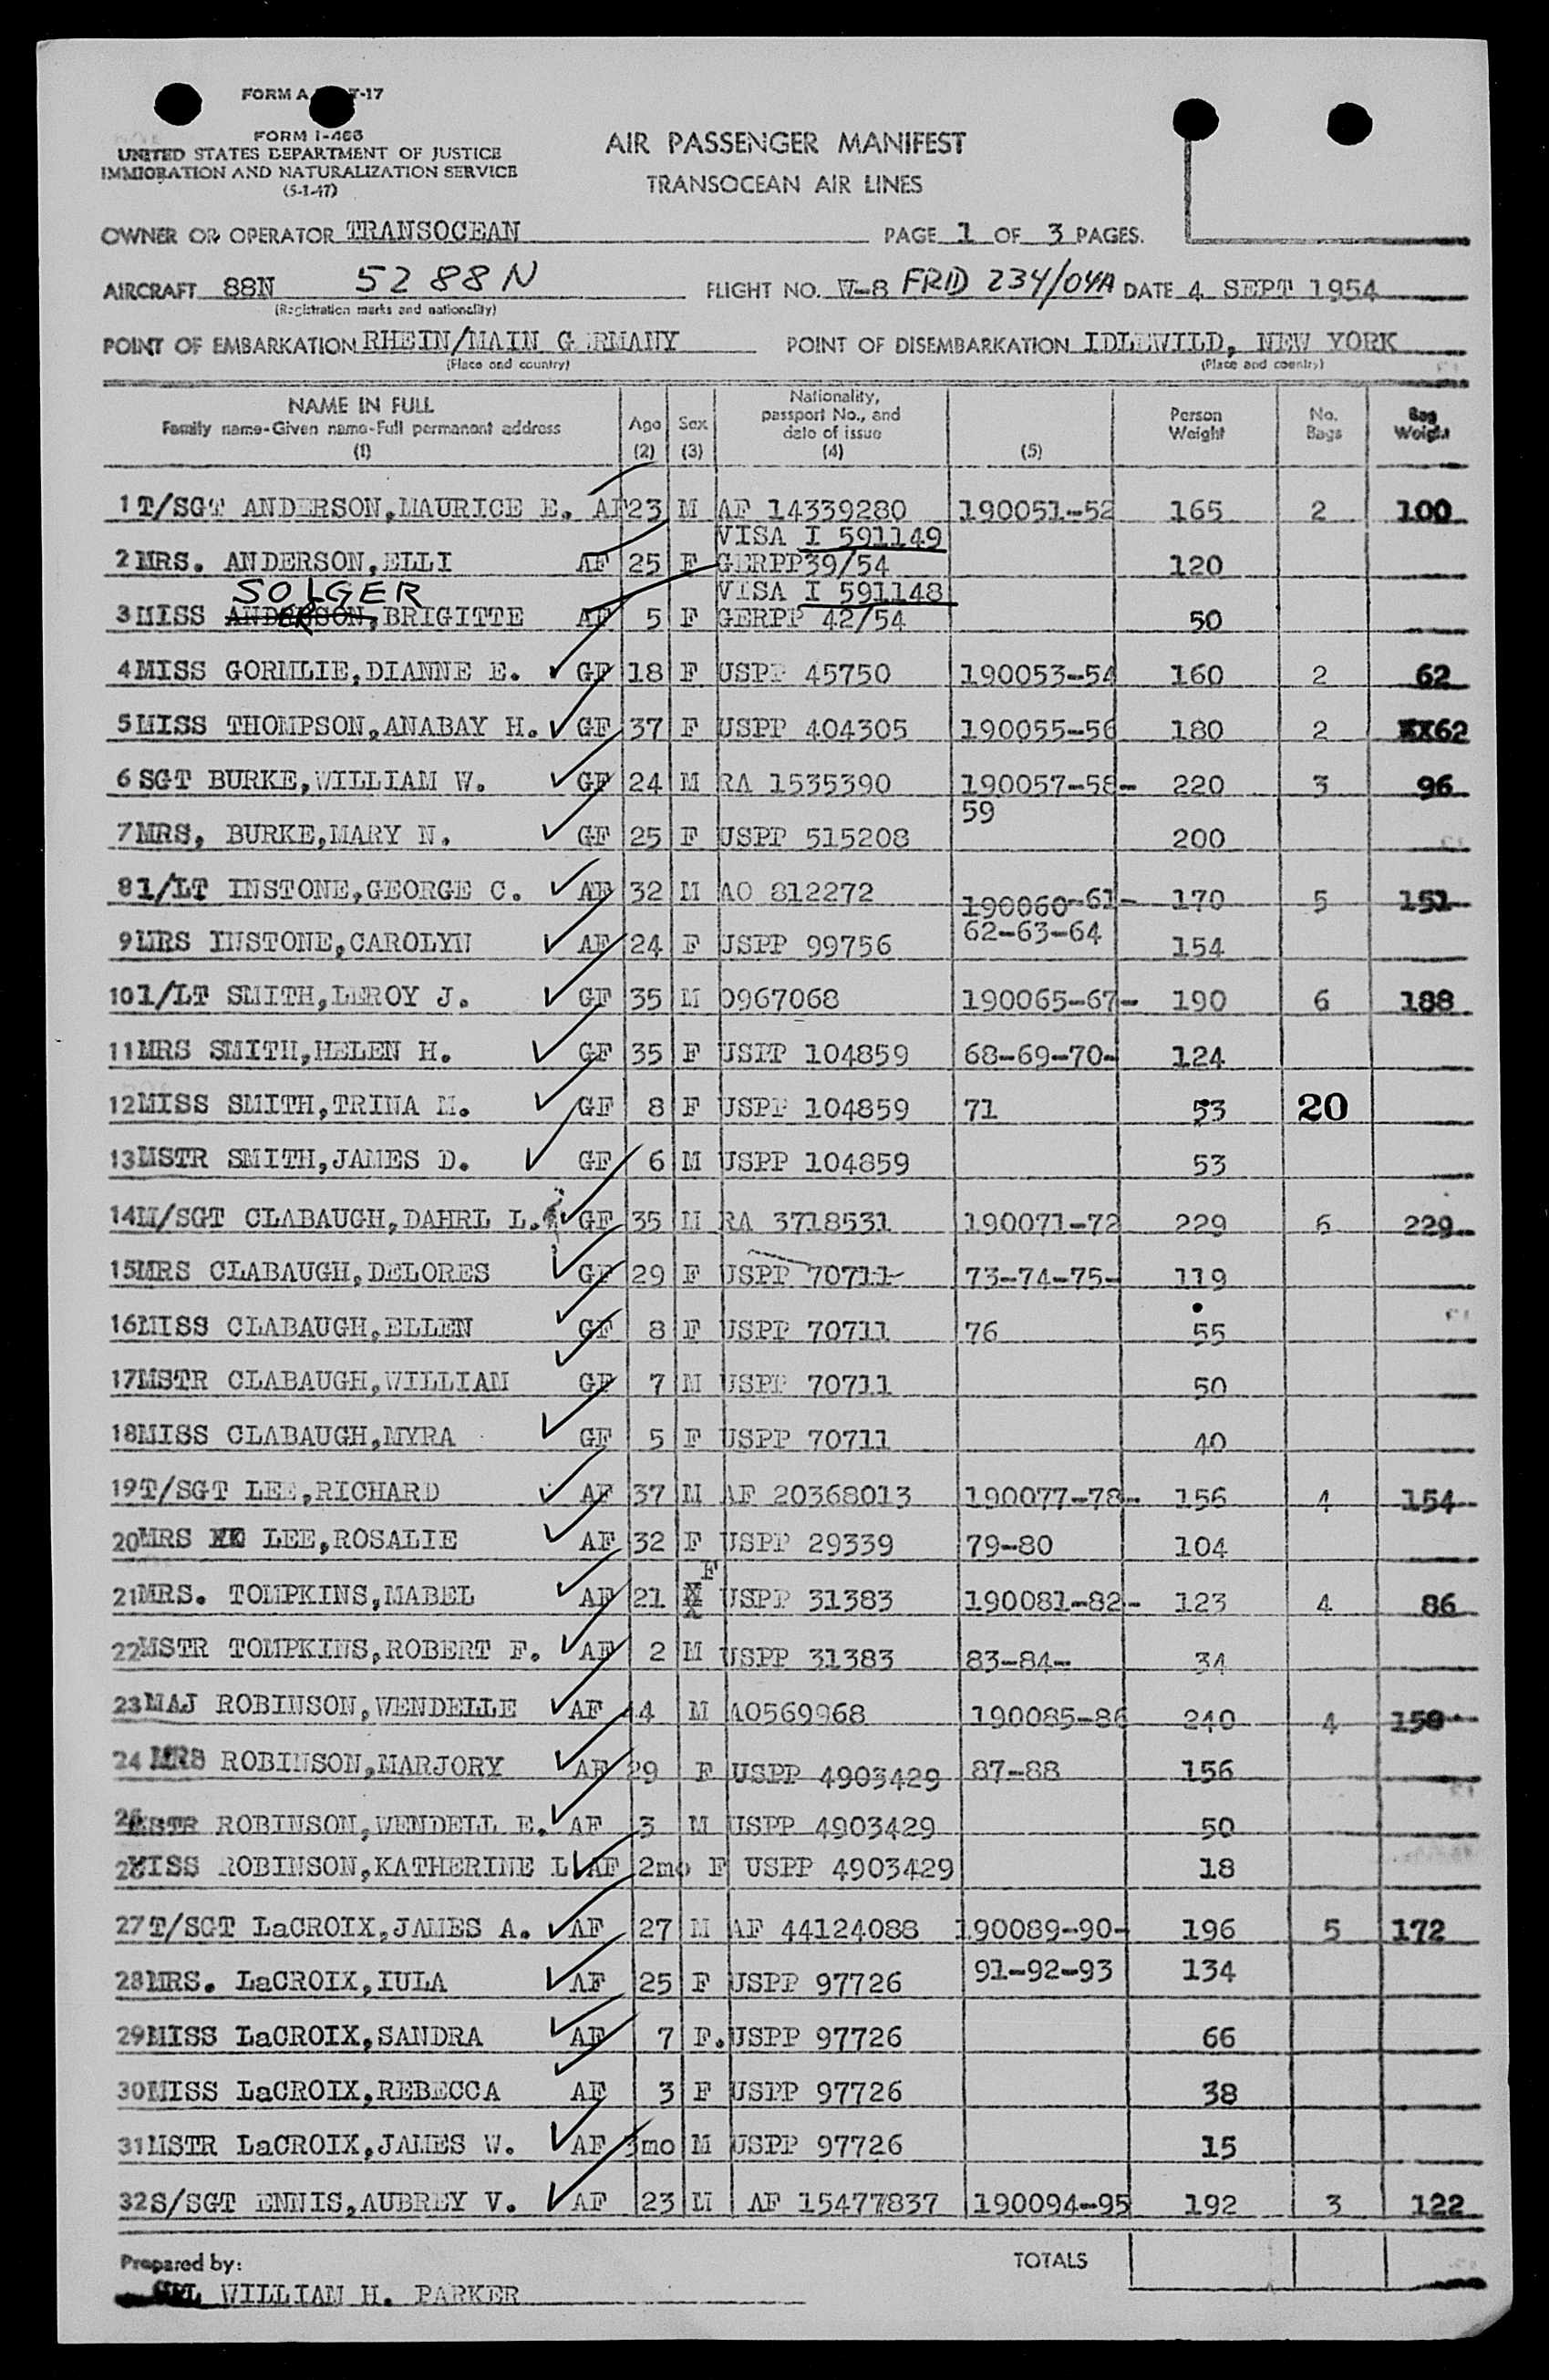 FORM A T-17
FORM I-466
UNITED STATES DEPARTMENT OF JUSTICE
IMMIGRATION AND NATURALIZATION SERVICE
(5-1-47)
AIR PASSENGER MANIFEST
TRANSOCEAN AIR LINES
OWNER OR OPERATOR TRANSOCEAN PAGE 1 OF 3 PAGES.
AIRCRAFT 88N 5288N FLIGHT NO. W-8 FRID 234/04A DATE 4 SEPT 1954
(Registration marks and nationality)
POINT OF EMBARKATION RHEIN/MAIN GERMANY POINT OF DISEMBARKATION IDLEWILD, NEW YORK
(Place and country) (Place and country)
NAME IN FULL Age Sex Nationality, passport No., and date of issue Person Weight No. Bags Bag Weight
Family name-Given name-Full permanent address
(1) (2) (3) (4) (5)
1 T/SGT ANDERSON,MAURICE E. AF 23 M AF 14339280 190051-52 165 2 100
VISA I 591149
2 MRS. ANDERSON,ELLI AF 25 F GERPP39/54 120
SOLGER VISA I 591148
3 MISS ANDERSON,BRIGITTE AF 5 F GERPP 42/54 50
4 MISS GORMLIE,DIANNE E. GF 18 F USPP 45750 190053-54 160 2 62
5 MISS THOMPSON,ANABAY H. GF 37 F USPP 404305 190055-56 180 2 XX62
6 SGT BURKE,WILLIAM W. GF 24 M RA 1535390 190057-58- 220 3 96
59
7 MRS, BURKE,MARY N. GF 25 F USPP 515208 200
8 1/LT INSTONE,GEORGE C. AF 32 M AO 812272 190060-61- 170 5 151
9 MRS INSTONE,CAROLYN AF 24 F USPP 99756 62-63-64 154
10 1/LT SMITH,LEROY J. GF 35 M O967068 190065-67- 190 6 188
11 MRS SMITH,HELEN H. GF 35 F USPP 104859 68-69-70- 124
12 MISS SMITH,TRINA M. GF 8 F USPP 104859 71 53 20
13 MSTR SMITH,JAMES D. GF 6 M USPP 104859 53
14 M/SGT CLABAUGH,DAHRL L. GF 35 M RA 3718531 190071-72 229 6 229
15 MRS CLABAUGH,DELORES GF 29 F USPP 70711 73-74-75- 119
16 MISS CLABAUGH,ELLEN GF 8 F USPP 70711 76 55
17 MSTR CLABAUGH,WILLIAM GF 7 M USPP 70711 50
18 MISS CLABAUGH,MYRA GF 5 F USPP 70711 40
19 T/SGT LEE,RICHARD AF 37 M AF 20368013 190077-78- 156 4 154
20 MRS LEE,ROSALIE AF 32 F USPP 29339 79-80 104
F
21 MRS. TOMPKINS,MABEL AF 21 USPP 31383 190081-82- 123 4 86
22 MSTR TOMPKINS,ROBERT F. AF 2 M USPP 31383 83-84- 34
23 MAJ ROBINSON,WENDELLE AF 44 M AO569968 190085-86 240 4 150
24 MRS ROBINSON,MARJORY AF 29 F USPP 4903429 87-88 156
25 MSTR ROBINSON,WENDELL E. AF 3 M USPP 4903429 50
26 MISS ROBINSON,KATHERINE L AF 2mo F USPP 4903429 18
27 T/SGT LaCROIX,JAMES A. AF 27 M AF 44124088 190089-90- 196 5 172
28 MRS. LaCROIX,IULA AF 25 F USPP 97726 91-92-93 134
29 MISS LaCROIX,SANDRA AF 7 F. USPP 97726 66
30 MISS LaCROIX,REBECCA AF 3 F USPP 97726 38
31 MSTR LaCROIX,JAMES W. AF 3mo M USPP 97726 15
32 S/SGT ENNIS,AUBREY V. AF 23 M AF 15477837 190094-95 192 3 122
Prepared by: TOTALS
WILLIAM H. PARKER